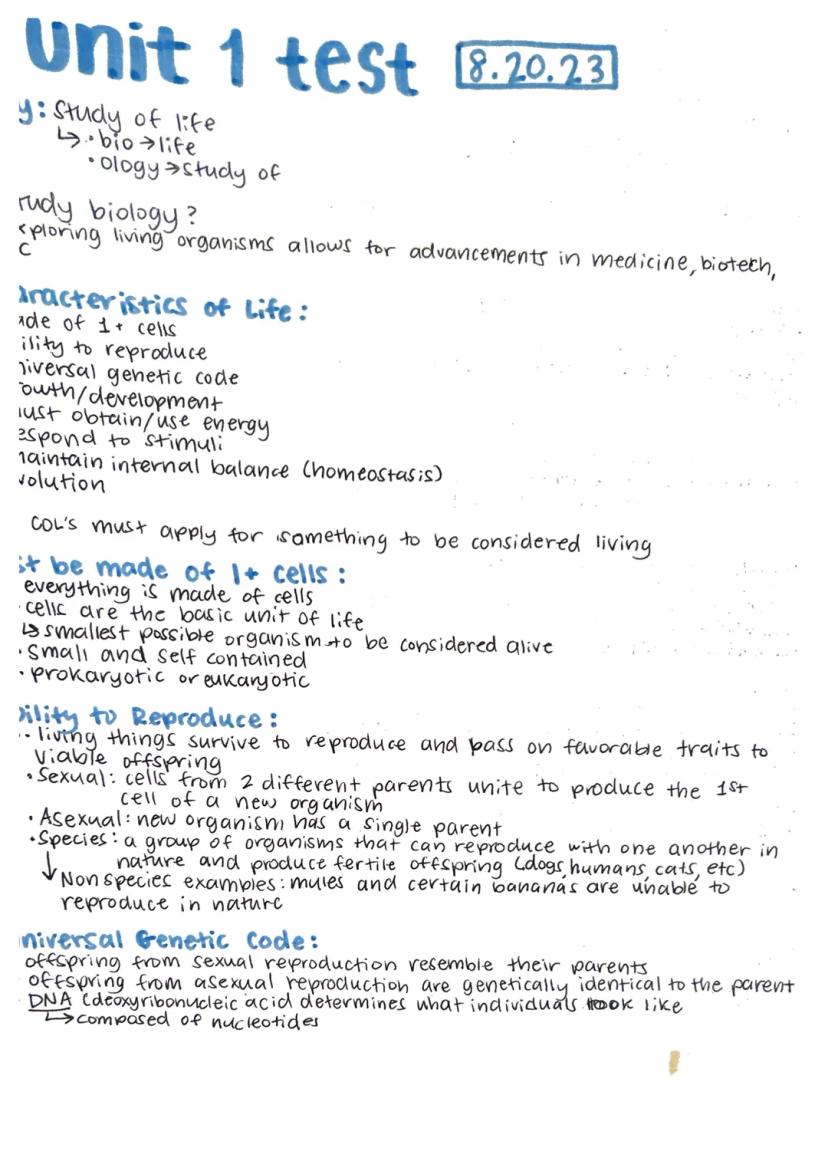 unit 1 test 8.20.23
y: study of life
↳ • bio → life
• ology → study of
rudy biology?
xploring living organisms allows for advancements in medicine, biotech,
c
aracteristics of Life:
ade of 1+ cells
ility to reproduce
niversal genetic code
owth/development
nust obtain/use energy
espond to stimuli
naintain internal balance (homeostasis)
volution
COL's must apply for something to be considered living
st be made of 1+ cells:
everything is made of cells
• cells are the basic unit of life
↳ smallest possible organism to be considered alive
• Small and self contained
• prokaryotic or eukaryotic
bility to Reproduce:
• living things survive to reproduce and pass on favorable traits to
viable offspring
• Sexual: cells from 2 different parents unite to produce the 1st
cell of a new organism
• Asexual: new organism has a single parent
• Species: a group of organisms that can reproduce with one another in
nature and produce fertile offspring (dogs, humans, cats, etc)
↓ Non species examples: mules and certain bananas are unable to
reproduce in nature
niversal Genetic Code:
offspring from sexual reproduction resemble their parents
offspring from asexual reproduction are genetically identical to the parent
DNA (deoxyribonucleic acid determines what individuals look like
↳ composed of nucleotides